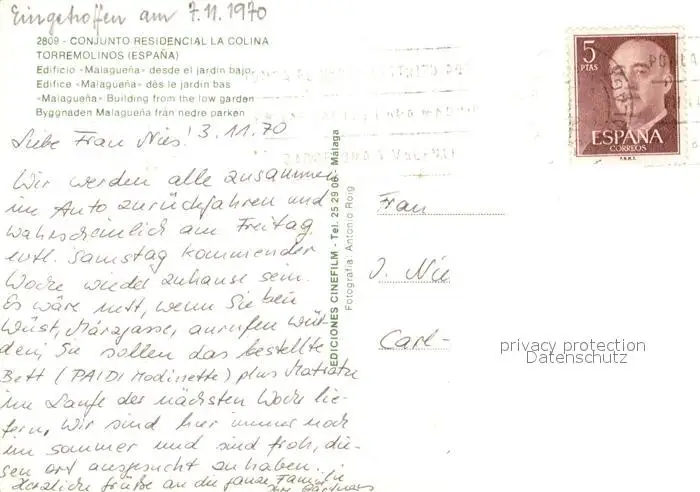 Eingetroffen am 7.11.1970
2809 - CONJUNTO RESIDENCIAL LA COLINA
TORREMOLINOS (ESPAÑA)
Edificio «Malagueña» desde el jardin bajo
Edifice «Malagueña» dès le jardin bas
«Malagueña» Building from the low garden
Byggnaden Malagueña från nedre parken
Liebe Frau Nies! 3.11.70
Wir werden alle zusammen
im Auto zurückfahren und
wahrscheinlich am Freitag
evtl. Samstag kommender
Woche wieder zuhause sein.
Es wäre nett, wenn Sie bei
Wüst, Märzgasse, anrufen wür-
den; Sie sollen das bestellte
Bett (PAIDI Modinette) plus Matratze
im Laufe der nächsten Woche lie-
fern. Wir sind hier immer noch
im Sommer und sind froh, die-
sen Ort ausgesucht zu haben.
Herzliche Grüße an die ganze Familie
Ihre
EDICIONES CINEFILM - Tel. 25 29 06 - Málaga
Fotografia: Antonio Roig
5
PTAS
ESPAÑA
CORREOS
F.N.M.T.
Frau
J. Nie
Carl-
privacy protection
Datenschutz